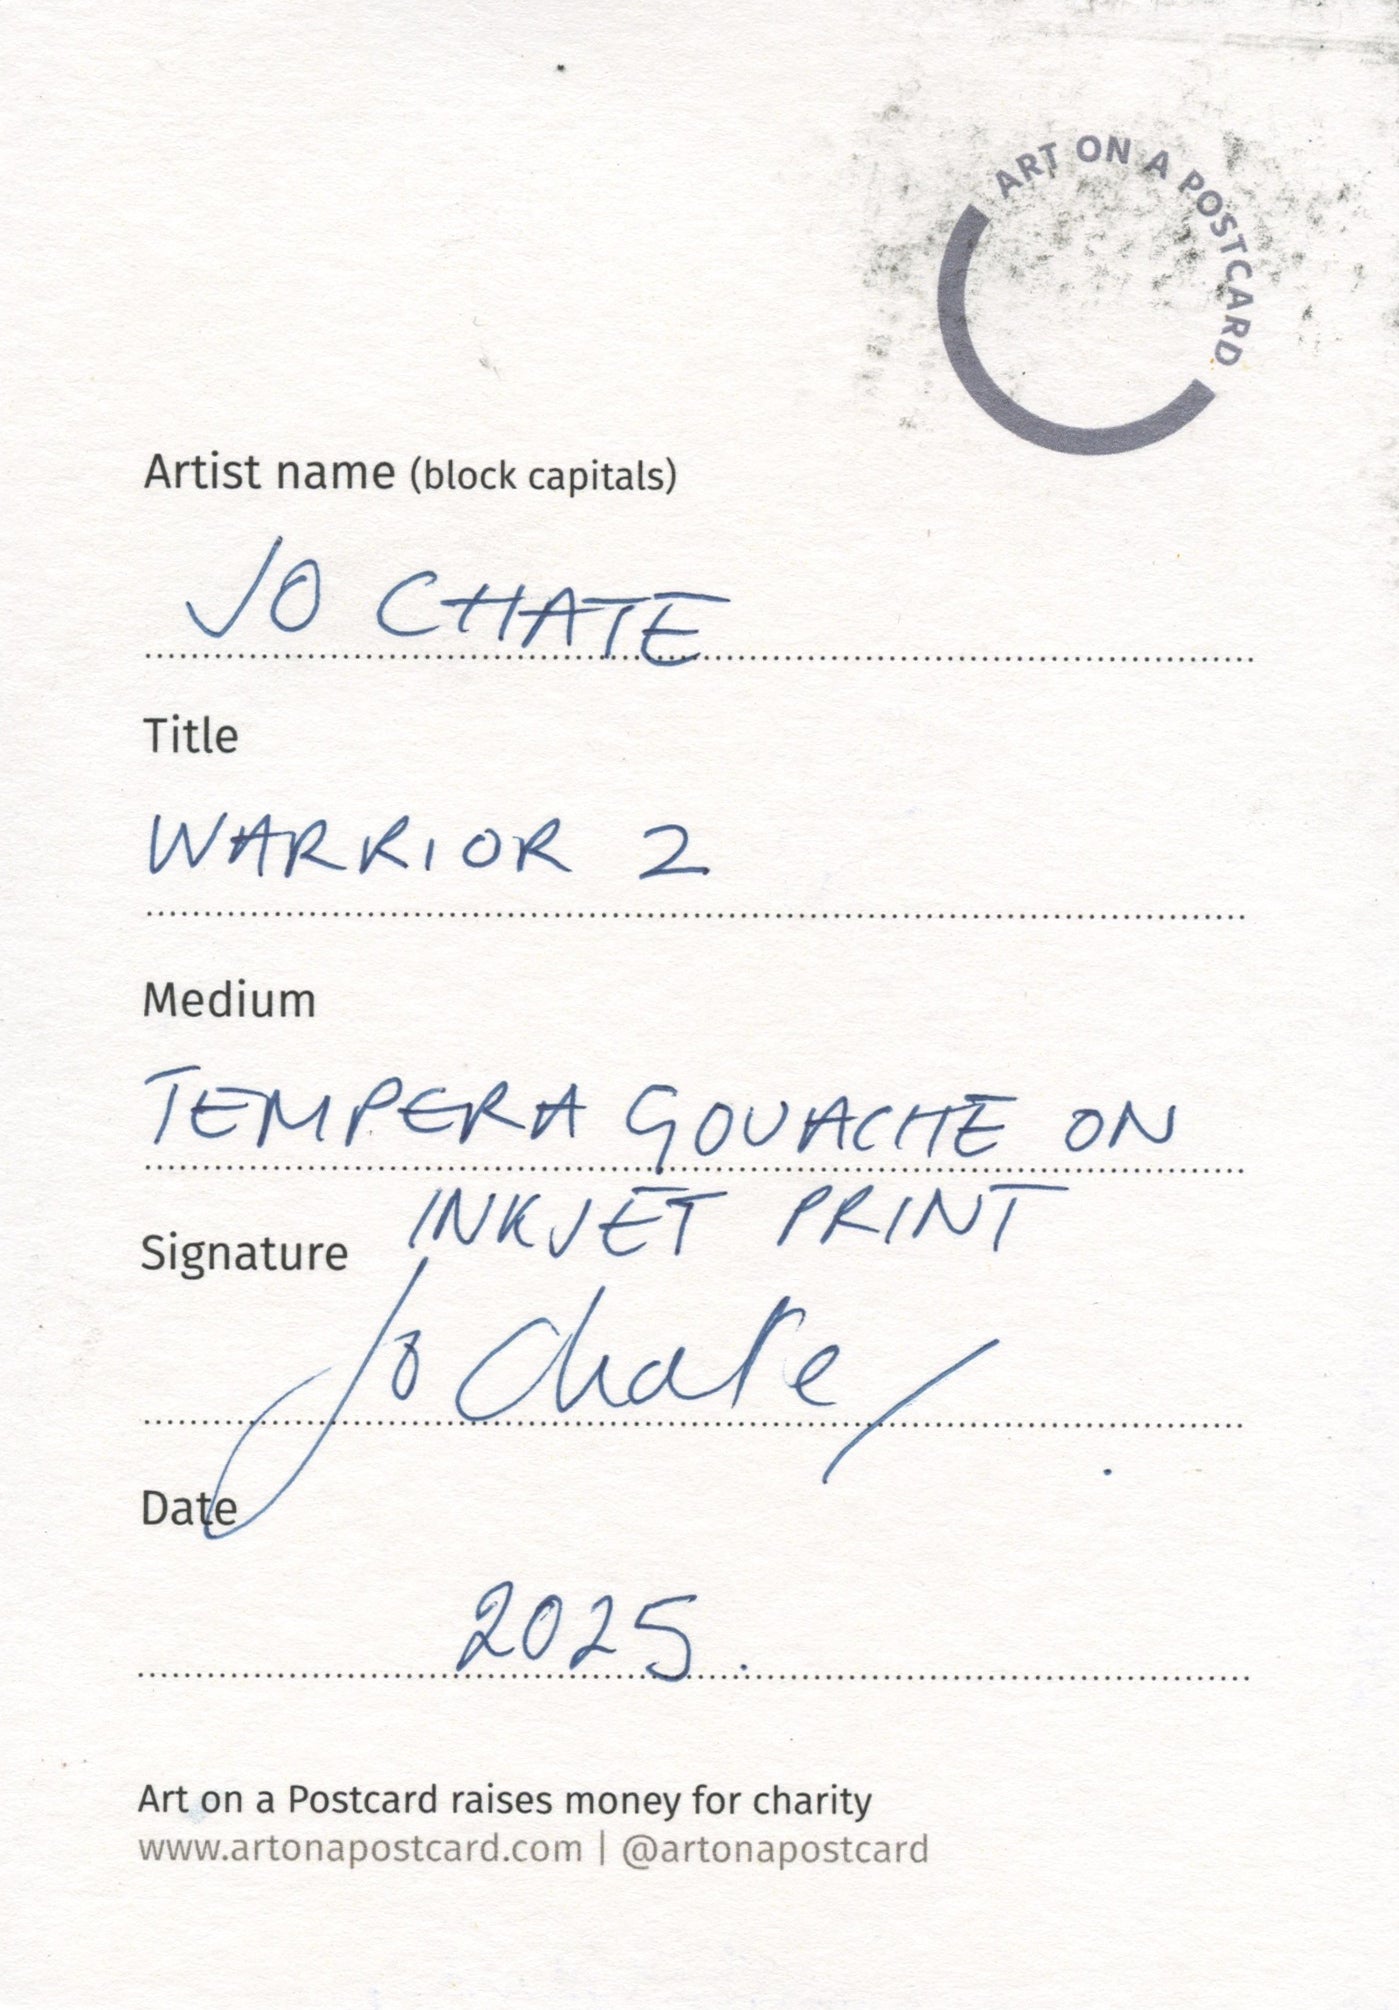 ART ON A POSTCARD
Artist name (block capitals)
JO CHATE
Title
WARRIOR 2
Medium
TEMPERA GOUACHE ON
INKJET PRINT
Signature
Jo Chate
Date
2025.
Art on a Postcard raises money for charity
www.artonapostcard.com | @artonapostcard